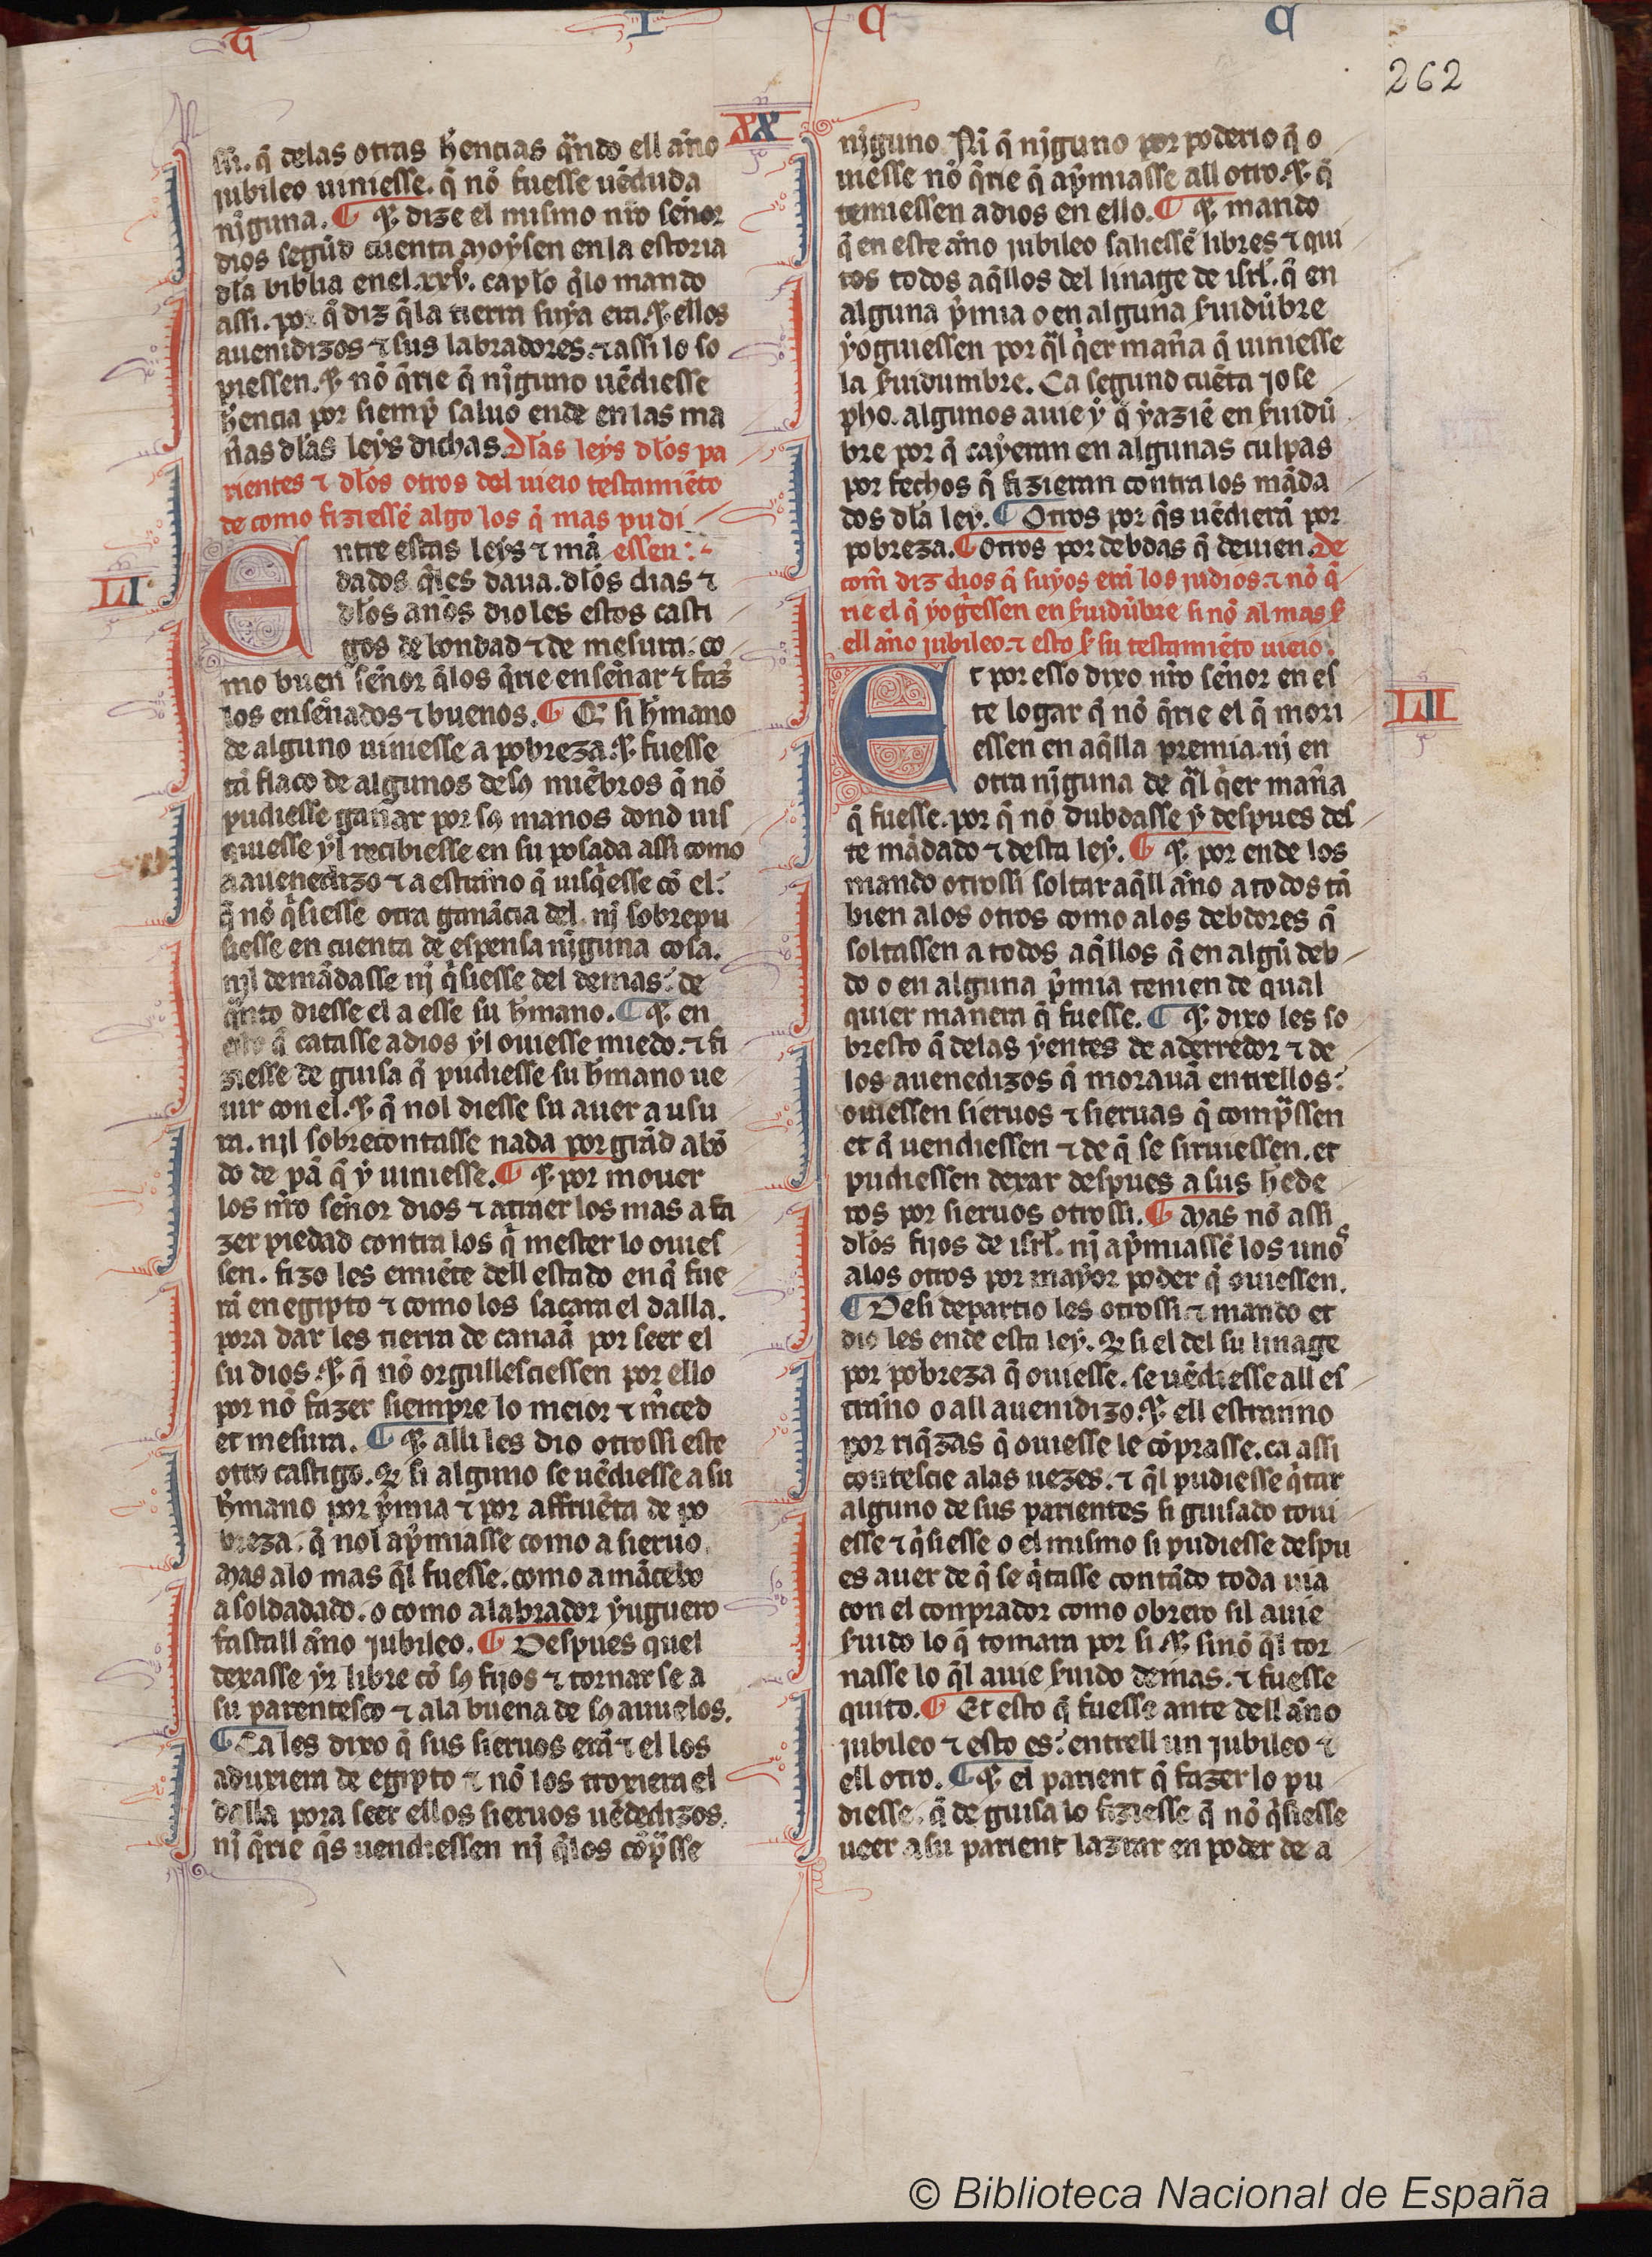 G I C C
262
XX
ssi. q̃ delas otras h̃encias q̃ndo ell an̄o
jubileo uiniesse. q̃ nõ fuesse uẽduda
nj̃guna. ¶ ⁊ dize el mismo nr̃o sen̄or
dios segũd cuenta moẏsen en la estoria
dl̃a biblia en el .xxv. cap̃lo q̃ lo mando
assi. por q̃ diz q̃ la tierra suẏa era. ⁊ ellos
auenidizos ⁊ sus labradores. ⁊ assi lo so
piessen. ⁊ nõ q̃rie q̃ nj̃guno uẽdiesse
h̃encia por siemp̃ saluo ende en las ma
n̄as dl̃as leẏs dichas. Dl̃as leẏs dl̃os pa
rientes ⁊ dl̃os otros del uieio testamiẽto
de como fiziessẽ algo los q̃ mas pudi
LI
Entre estas leẏs ⁊ mã essen:
dados q̃ les daua. dl̃os dias ⁊
dl̃os an̄os dioles estos casti
gos de bondad ⁊ de mesura. co
mo buen sen̄or q̃ los q̃rie ensen̄ar ⁊ faz̃
los ensen̄ados ⁊ buenos. ¶ Q̃ si h̃mano
de alguno uiniesse a pobreza. ⁊ fuesse
tã flaco de algunos de s9 miẽbros q̃ nõ
pudiesse ganar por s9 manos dond uis
quiesse ẏl recibiesse en su posada assi como
a auenedizo ⁊ a estran̄o q̃ uisq̃esse cõ el.
q̃ nõ q̃siesse otra ganãcia del. nj̃ sobrepu
siesse en cuenta de espensa nj̃guna cosa.
njl demãdasse nj̃ q̃siesse del demas. de
q̃nto diesse el a esse su h̃mano. ¶ ⁊ en
esto q̃ catasse a dios ẏl ouiesse miedo. ⁊ fi
ziesse de guisa q̃ pudiesse su h̃mano ue
uir con el. ⁊ q̃ nol diesse su auer a usu
ra. njl sobrecontasse nada por grãd abõ
do de pã q̃ ẏ uiniesse. ¶ ⁊ por mouer
los nr̃o sen̄or dios ⁊ atraer los mas a fa
zer piedad contra los q̃ mester lo ouies
sen. fizo les emiẽte dell estado en q̃ fue
rã en egipto ⁊ como los sacara el dalla.
pora dar les tierra de canaã por seer el
su dios. ⁊ q̃ nõ orgullesciessen por ello
por nõ fazer siempre lo meior ⁊ m̃ced
et mesura. ¶ ⁊ alli les dio otrossi este
otro castigo. Q̃ si alguno se uẽdiesse a su
h̃mano por p̃mia ⁊ por affruẽta de po
breza. q̃ nol ap̃miasse como a sieruo.
Mas alo mas q̃l fuesse. como a mãcebo
a soldadado. o como a labrador ẏuguero
fastall an̄o jubileo. ¶ Despues quel
dexasse ẏr libre cõ s9 fijos ⁊ tornar se a
su parentesco ⁊ ala buena de s9 auuelos.
¶ Ca les dixo q̃ sus sieruos erã ⁊ el los
aduxiera de egipto ⁊ nõ los troxiera el
dalla pora seer ellos sieruos uẽdedizos.
nj̃ q̃rie q̃s uendiessen nj̃ q̃ los cõp̃sse
nj̃guno. Ni q̃ nj̃guno por poderio q̃ o
uiesse nõ q̃rie q̃ ap̃miasse all otro. ⁊ q̃
temiessen a dios en ello. ¶ ⁊ mando
q̃ en este an̄o jubileo saliessẽ libres ⁊ qui
tos todos aq̃llos del linage de isrl̃. q̃ en
alguna p̃mia o en alguna s̃uidũbre
ẏoguiessen por q̃l q̃er man̄a q̃ uiniesse
la s̃uidumbre. Ca segund cuẽta iose
pho. algunos auie ẏ q̃ ẏaziẽ en s̃uidũ
bre por q̃ caẏeran en algunas culpas
por fechos q̃ fizieran contra los mãda
dos dl̃a leẏ. ¶ Otros por q̃s uẽdierã por
pobreza. ¶ Otros por debdas q̃ deuien. De
com̃ diz dios q̃ suyos erã los judios. ⁊ nõ q̃
rie el q̃ yog̃essen en s̃uidũbre si nõ al mas s̃
ell an̄o jubileo. ⁊ esto s̃ su testamiẽto uieio.
LII
Et por esso dixo nr̃o sen̄or en es
te logar q̃ nõ q̃rie el q̃ mori
essen en aq̃lla premia. nj̃ en
otra nj̃guna de q̃l q̃er man̄a
q̃ fuesse. por q̃ nõ dubdasse ẏ despues des
te mãdado ⁊ desta leẏ. ¶ ⁊ por ende los
mando otrossi soltar aq̃ll an̄o a todos tã
bien alos otros como alos debdores q̃
soltassen a todos aq̃llos q̃ en algũ deb
do o en alguna p̃mia tenien de qual
quier manera q̃ fuesse. ¶ ⁊ dixo les so
bresto q̃ delas ẏentes de aderredor ⁊ de
los auenedizos q̃ morauã entrellos.
ouiessen sieruos ⁊ sieruas q̃ comp̃ssen
et q̃ uendiessen ⁊ de q̃ se siruiessen. et
pudiessen dexar despues a sus h̃ede
ros por sieruos otrossi. ¶ Mas nõ assi
dl̃os fijos de isrl̃. nj̃ ap̃miassẽ los unos
alos otros por maẏor poder q̃ ouiessen.
¶ Desi departio les otrossi ⁊ mando et
dio les ende esta leẏ. Q̃ si el del su linage
por pobreza q̃ ouiesse. se uẽdiesse all es
tran̄o o all auenidizo. ⁊ ell estranno
por riq̃zas q̃ ouiesse le cõprasse. ca assi
contescie alas uezes. ⁊ q̃l pudiesse q̃tar
alguno de sus parientes si guisado toui
esse ⁊ q̃siesse o el mismo si pudiesse despu
es auer de q̃ se q̃tasse contãdo toda uia
con el conprador como obrero sil auie
s̃uido lo q̃ tomara por si. ⁊ sinõ q̃l tor
nasse lo q̃l auie s̃uido demas. ⁊ fuesse
quito. ¶ Et esto q̃ fuesse ante dell an̄o
jubileo ⁊ esto es. entrell un jubileo ⁊
ell otro. ¶ ⁊ el parient q̃ fazer lo pu
diesse. q̃ de guisa lo fiziesse q̃ nõ q̃siesse
ueer a su parient lazrar en poder de a
© Biblioteca Nacional de España